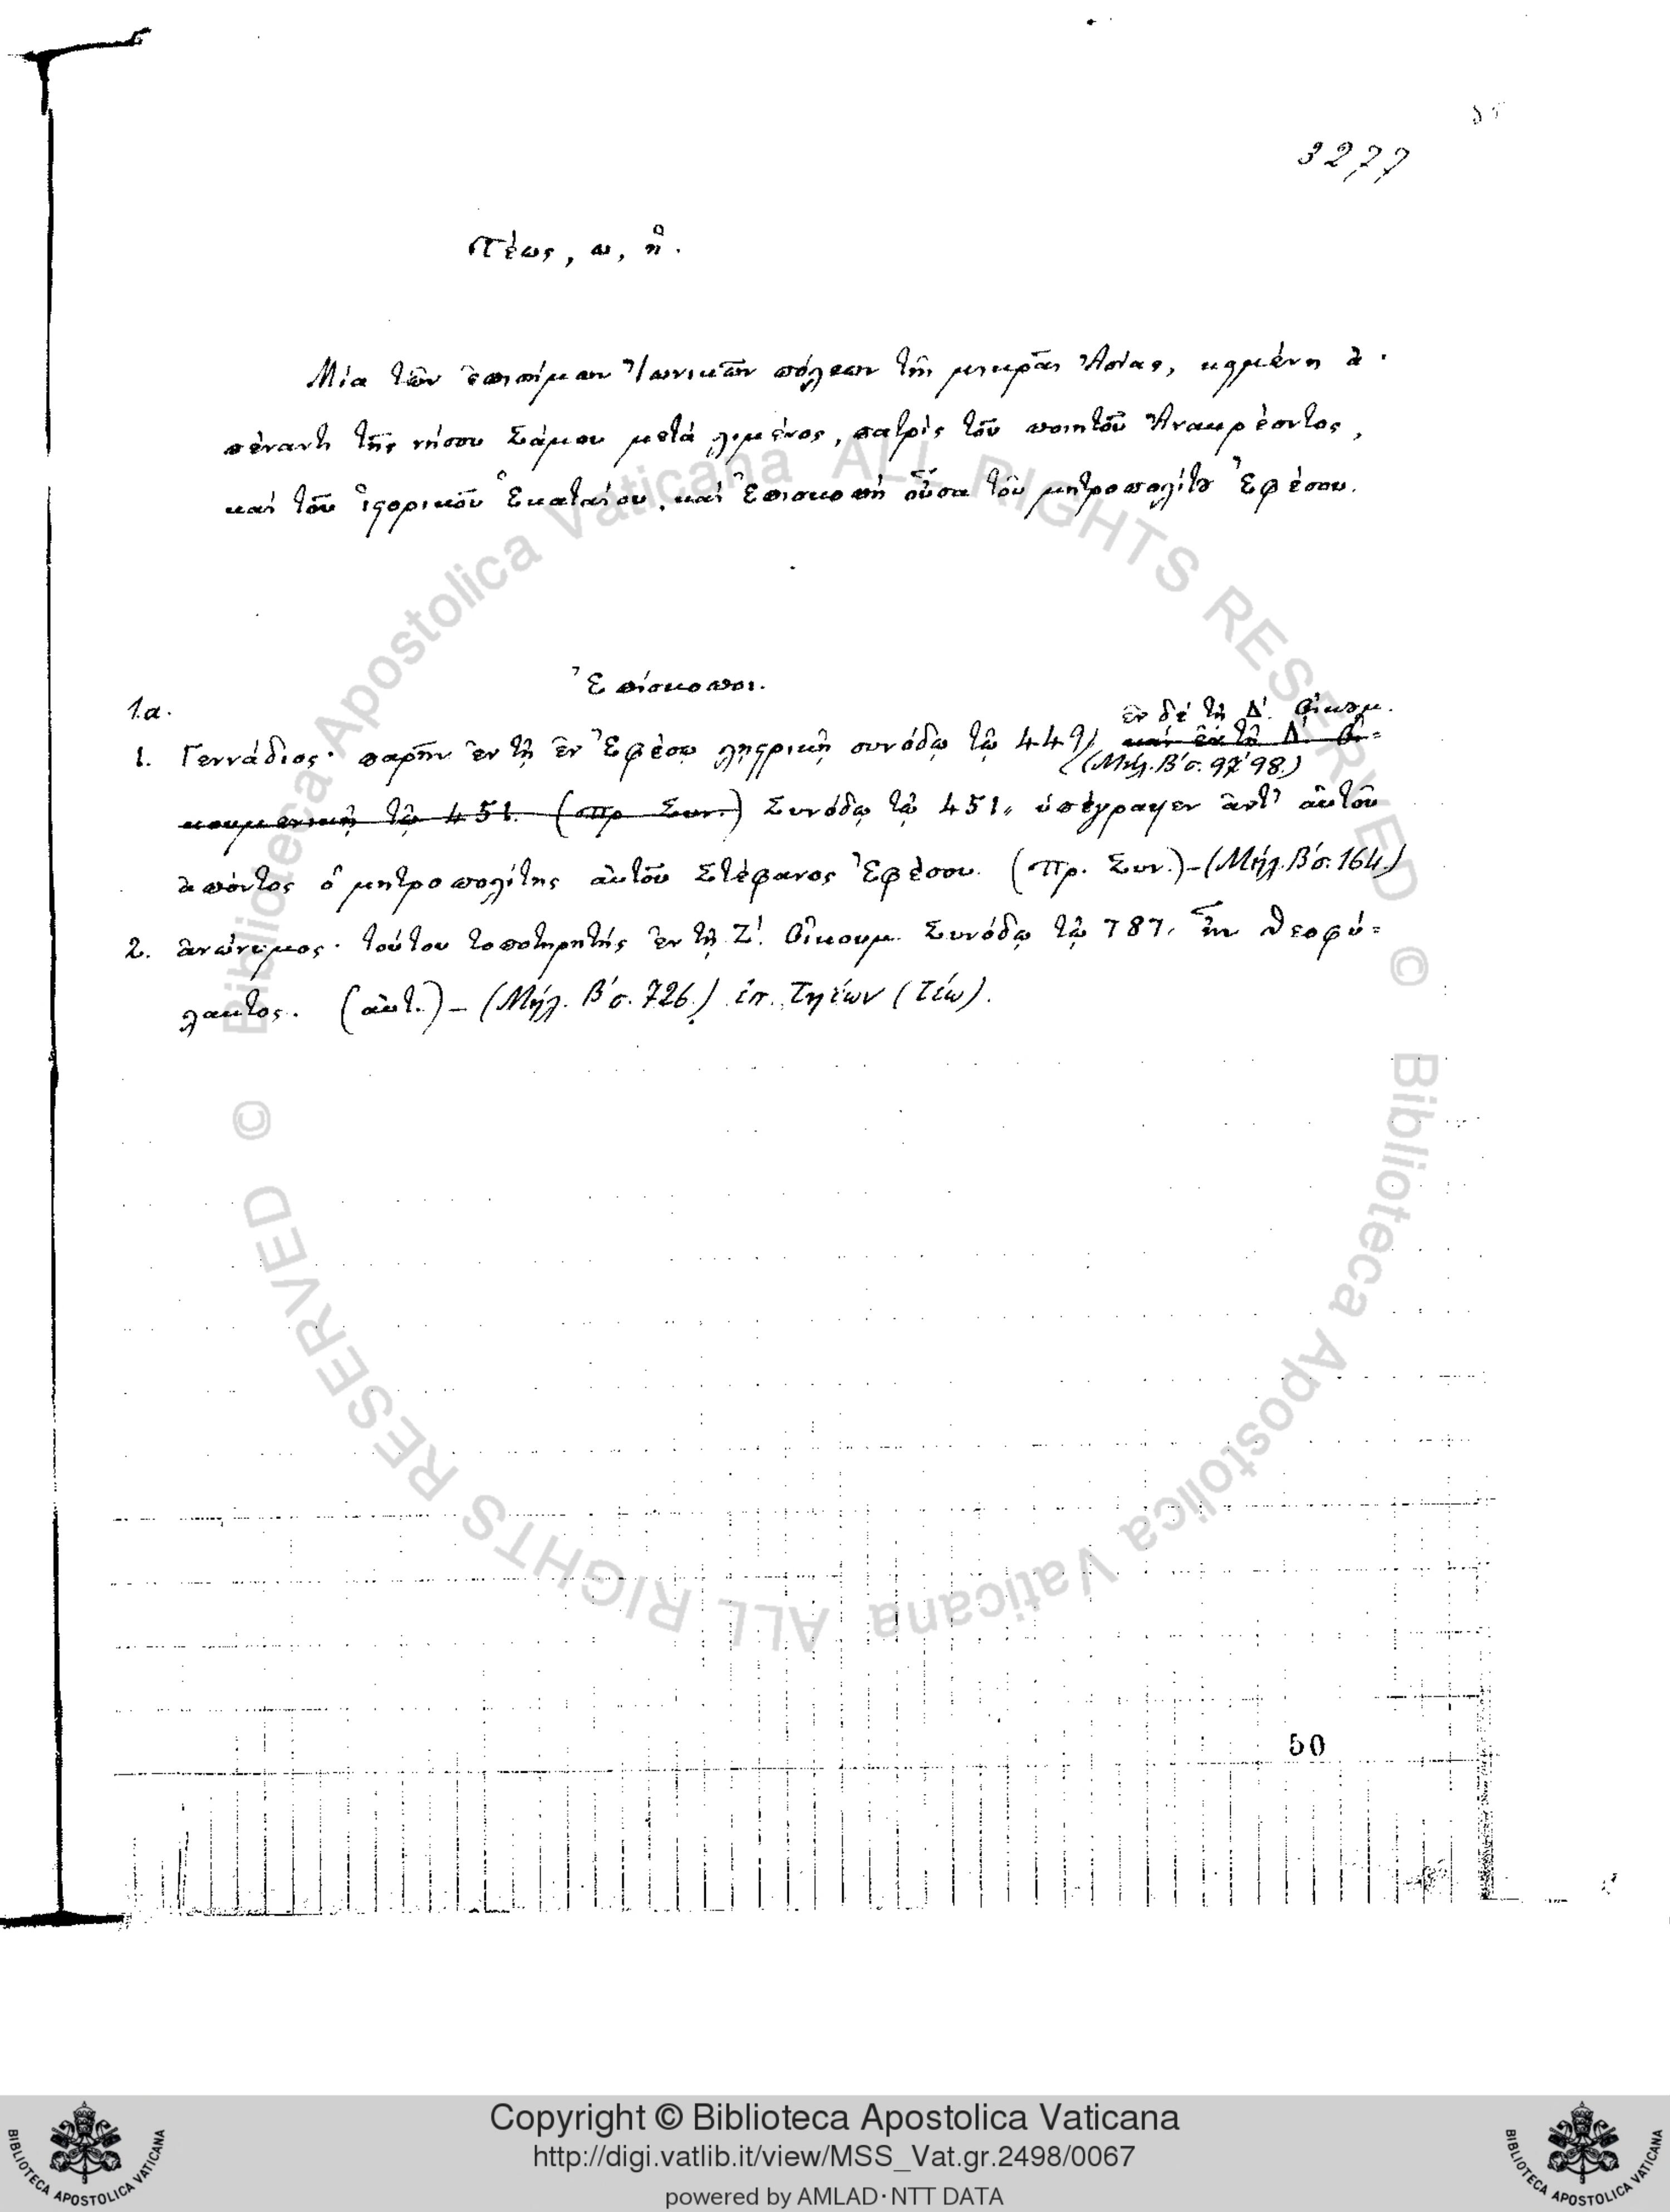 3277
Τέως, ω, ἡ.
Μία τῶν ἐπισήμων Ἰωνικῶν πόλεων τῆς μικρᾶς Ἀσίας, κειμένη ἀ-
πέναντι τῆς νήσου Σάμου μετὰ λιμένος, πατρὶς τοῦ ποιητοῦ Ἀνακρέοντος,
καὶ τοῦ ἱστορικοῦ Ἑκαταίου, καὶ Ἐπισκοπὴ οὖσα τοῦ μητροπολίτου Ἐφέσου.
Ἐπίσκοποι.
1.α.
ἐν δὲ τῇ Δ'. Οἰκουμ.
1. Γεννάδιος· παρῆν ἐν τῇ ἐν Ἐφέσῳ λῃστρικῇ συνόδῳ τῷ 449 καὶ ἐν τῇ Δ'. Οἰ=
(Μήλ. Β' σ. 97 98.)
κουμενικῇ τῷ 451. (πρ. Συν.) Συνόδῳ τῷ 451, ὑπέγραψεν ἀντ' αὐτοῦ
ἀπόντος ὁ μητροπολίτης αὐτοῦ Στέφανος Ἐφέσου. (Πρ. Συν.) - (Μήλ. Β' σ. 164.)
2. ἀνώνυμος· τούτου τοποτηρητὴς ἐν τῇ Ζ'. Οἰκουμ. Συνόδῳ τῷ 787, ἦν Θεοφύ=
λακτος. (αὐτ.) - (Μήλ. Β' σ. 726.) ἐπ. Τηΐων (Τέω).
50
Biblioteca Apostolica Vaticana ALL RIGHTS RESERVED ©
Biblioteca Apostolica Vaticana ALL RIGHTS RESERVED ©
Copyright © Biblioteca Apostolica Vaticana
http://digi.vatlib.it/view/MSS_Vat.gr.2498/0067
powered by AMLAD·NTT DATA
BIBLIOTECA APOSTOLICA VATICANA
BIBLIOTECA APOSTOLICA VATICANA